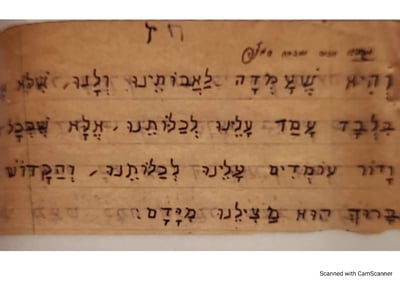 וְהִיא שֶׁעָמְדָה לַאֲבוֹתֵינוּ וְלָנוּ, שֶׁלֹּא
בִּלְבָד עָמַד עָלֵינוּ לְכַלּוֹתֵנוּ, אֶלָּא שֶׁבְּכָל
וָדוֹר עוֹמְדִים עָלֵינוּ לְכַלּוֹתֵנוּ, וְהַקָּדוֹשׁ
בָּרוּךְ הוּא מַצִּילֵנוּ מִיָּדָם:
Scanned with CamScanner